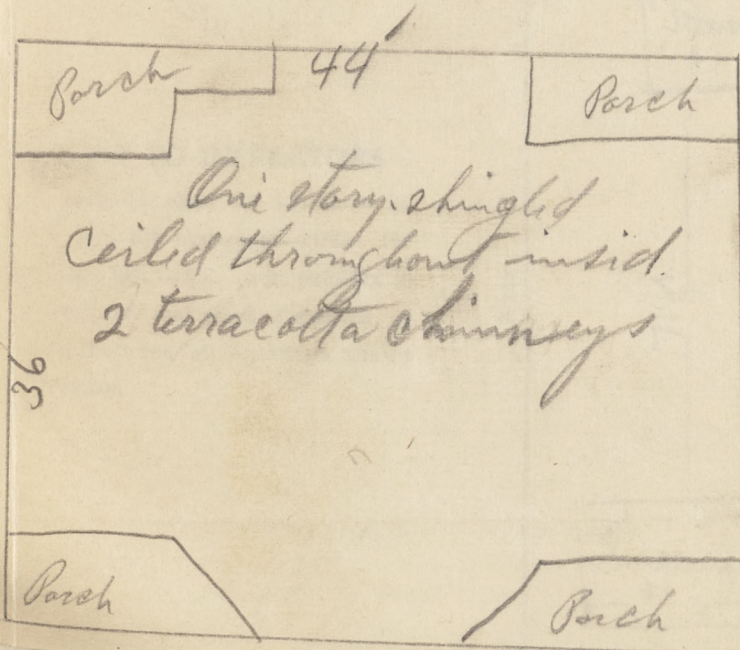 Porch
44'
Porch
One story. shingled
Ceiled throughout insid.
2 terracotta chimneys
36
Porch
Porch